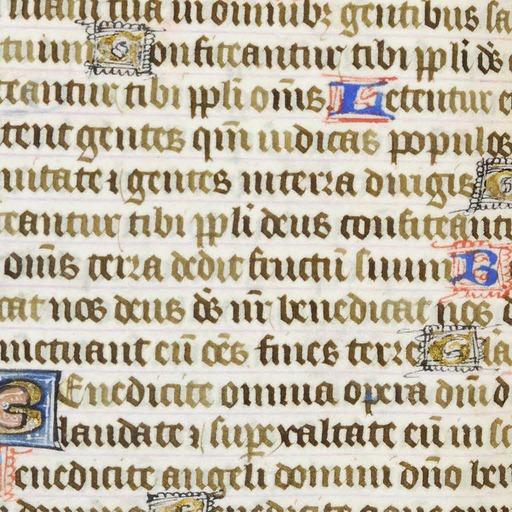 tuam in omnibȝ gentibus sa
tuum Confiteantur tibi ppl̄i ds̄
teantur tibi ppl̄i om̄s Letentur e
tent gentes qm̄ iudicas populos
uitate ⁊ gentes in terra dirigis
teantur tibi ppl̄i deus confiteant
om̄s terra dedit fructū suum B
cat nos deus ds̄ nr̄ benedicat nos
metuant eū om̄s fines terre
Benedicite omnia opera dn̄i d
laudate ⁊ superexaltate eū in se
enedicite angeli domini dn̄o ben